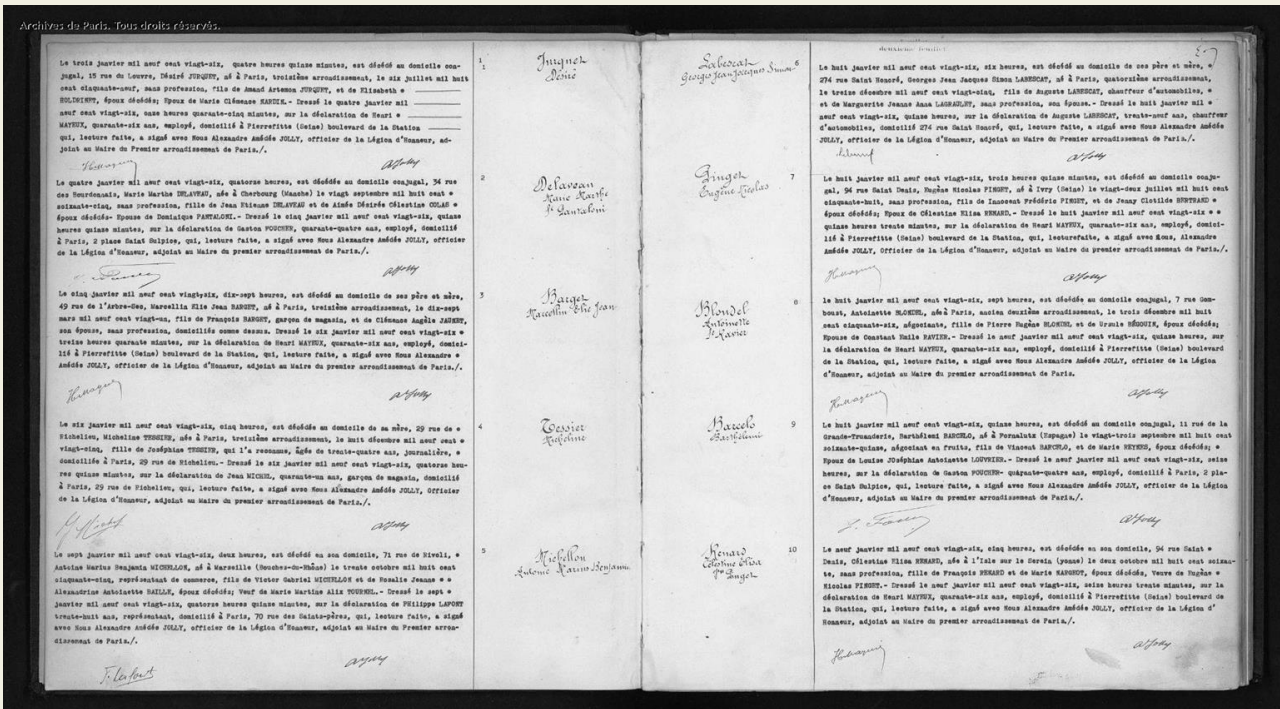 Archives de Paris. Tous droits réservés.
Le trois janvier mil neuf cent vingt-six, quatre heures quinze minutes, est décédé au domicile con-
jugal, 15 rue du Louvre, Désiré JURQUET, né à Paris, troisième arrondissement, le six juillet mil huit
cent cinquante-neuf, sans profession, fils de Amand Artemon JURQUET, et de Elisabeth
HOLDRINET, époux décédés; Epoux de Marie Clémence NARDIN.- Dressé le quatre janvier mil
neuf cent vingt-six, onze heures quarante-cinq minutes, sur la déclaration de Henri
MAYEUX, quarante-six ans, employé, domicilié à Pierrefitte (Seine) boulevard de la Station
qui, lecture faite, a signé avec Nous Alexandre Amédée JOLLY, officier de la Légion d'Honneur, ad-
joint au Maire du Premier arrondissement de Paris./.
AJolly
Le quatre janvier mil neuf cent vingt-six, quatorze heures, est décédée au domicile conjugal, 34 rue
des Bourdonnais, Marie Marthe DELAVEAU, née à Cherbourg (Manche) le vingt septembre mil huit cent
soixante-cinq, sans profession, fille de Jean Etienne DELAVEAU et de Aimée Désirée Célestine COLAS
époux décédés- Epouse de Dominique PANTALONI.- Dressé le cinq janvier mil neuf cent vingt-six, quinze
heures quinze minutes, sur la déclaration de Gaston FOUCHER, quarante-quatre ans, employé, domicilié
à Paris, 2 place Saint Sulpice, qui, lecture faite, a signé avec Nous Alexandre Amédée JOLLY, officier
de la Légion d'Honneur, adjoint au Maire du premier arrondissement de Paris./.
AJolly
Le cinq janvier mil neuf cent vingt-six, dix-sept heures, est décédé au domicile de ses père et mère,
49 rue de l'Arbre-Sec, Marcellin Elie Jean BARGET, né à Paris, troisième arrondissement, le dix-sept
mars mil neuf cent vingt-un, fils de François BARGET, garçon de magasin, et de Clémence Angèle JAUNET,
son épouse, sans profession, domiciliés comme dessus. Dressé le six janvier mil neuf cent vingt-six
treize heures quarante minutes, sur la déclaration de Henri MAYEUX, quarante-six ans, employé, domici-
lié à Pierrefitte (Seine) boulevard de la Station, qui, lecture faite, a signé avec Nous Alexandre
Amédée JOLLY, officier de la Légion d'Honneur, adjoint au Maire du premier arrondissement de Paris./.
AJolly
Le six janvier mil neuf cent vingt-six, cinq heures, est décédée au domicile de sa mère, 29 rue de
Richelieu, Micheline TESSIER, née à Paris, treizième arrondissement, le huit décembre mil neuf cent
vingt-cinq, fille de Joséphine TESSIER, qui l'a reconnue, âgée de trente-quatre ans, journalière,
domiciliée à Paris, 29 rue de Richelieu.- Dressé le six janvier mil neuf cent vingt-six, quatorze heu-
res quinze minutes, sur la déclaration de Jean MICHEL, quarante-un ans, garçon de magasin, domicilié
à Paris, 29 rue de Richelieu, qui, lecture faite, a signé avec Nous Alexandre Amédée JOLLY, Officier
de la Légion d'Honneur, adjoint au Maire du premier arrondissement de Paris./.
AJolly
Le sept janvier mil neuf cent vingt-six, deux heures, est décédé en son domicile, 71 rue de Rivoli,
Antoine Marius Benjamin MICHELLON, né à Marseille (Bouches-du-Rhône) le trente octobre mil huit cent
cinquante-cinq, représentant de commerce, fils de Victor Gabriel MICHELLON et de Rosalie Jeanne
Alexandrine Antoinette BAILLE, époux décédés; Veuf de Marie Martine Alix TOURNEL.- Dressé le sept
janvier mil neuf cent vingt-six, quatorze heures quinze minutes, sur la déclaration de Philippe LAFONT
trente-huit ans, représentant, domicilié à Paris, 70 rue des Saints-pères, qui, lecture faite, a signé
avec Nous Alexandre Amédée JOLLY, officier de la Légion d'Honneur, adjoint au Maire du Premier arron-
dissement de Paris./.
AJolly
1
Jurquet
Désiré
2
Delaveau
Marie Marthe
Fe Pantaloni
3
Barget
Marcellin Elie Jean
4
Tessier
Micheline
5
Michellon
Antoine Marius Benjamin
Labescat
Georges Jean Jacques Simon
6
Pinget
Eugène Nicolas
7
Blondel
Antoinette
Fe Ravier
8
Barcelo
Barthélémi
9
Renard
Célestine Elisa
Ve Pinget
10
deuxième feuillet
Le huit janvier mil neuf cent vingt-six, six heures, est décédé au domicile de ses père et mère,
274 rue Saint Honoré, Georges Jean Jacques Simon LABESCAT, né à Paris, quatorzième arrondissement,
le treize décembre mil neuf cent vingt-cinq, fils de Auguste LABESCAT, chauffeur d'automobiles,
et de Marguerite Jeanne Anna LAGRAULET, sans profession, son épouse.- Dressé le huit janvier mil
neuf cent vingt-six, quinze heures, sur la déclaration de Auguste LABESCAT, trente-neuf ans, chauffeur
d'automobiles, domicilié 274 rue Saint Honoré, qui, lecture faite, a signé avec Nous Alexandre Amédée
JOLLY, officier de la Légion d'Honneur, adjoint au Maire du premier arrondissement de Paris./.
AJolly
Le huit janvier mil neuf cent vingt-six, trois heures quinze minutes, est décédé au domicile conju-
gal, 94 rue Saint Denis, Eugène Nicolas PINGET, né à Ivry (Seine) le vingt-deux juillet mil huit cent
cinquante-huit, sans profession, fils de Innocent Frédéric PINGET, et de Jenny Clotilde BERTRAND
époux décédés; Epoux de Célestine Elisa RENARD.- Dressé le huit janvier mil neuf cent vingt-six
quinze heures trente minutes, sur la déclaration de Henri MAYEUX, quarante-six ans, employé, domici-
lié à Pierrefitte (Seine) boulevard de la Station, qui, lecturefaite, a signé avec Nous, Alexandre
Amédée JOLLY, Officier de la Légion d'Honneur, adjoint au Maire du premier arrondissement de Paris./.
AJolly
Le huit janvier mil neuf cent vingt-six, sept heures, est décédée au domicile conjugal, 7 rue Gom-
boust, Antoinette BLONDEL, née à Paris, ancien deuxième arrondissement, le trois décembre mil huit
cent cinquante-six, négociante, fille de Pierre Eugène BLONDEL et de Ursule BÉGOUIN, époux décédés;
Epouse de Constant Emile RAVIER.- Dressé le neuf janvier mil neuf cent vingt-six, quinze heures, sur
la déclaration de Henri MAYEUX, quarante-six ans, employé, domicilié à Pierrefitte (Seine) boulevard
de la Station, qui, lecture faite, a signé avec Nous Alexandre Amédée JOLLY, officier de la Légion
d'Honneur, adjoint au Maire du premier arrondissement de Paris.
AJolly
Le huit janvier mil neuf cent vingt-six, quinze heures, est décédé au domicile conjugal, 11 rue de la
Grande-Truanderie, Barthélemi BARCELO, né à Fornalutx (Espagne) le vingt-trois septembre mil huit cent
soixante-quinze, négociant en fruits, fils de Vincent BARCELO, et de Marie REYNES, époux décédés;
Epoux de Louise JOséphine Antoinette LOUVRIER.- Dressé le neuf janvier mil neuf cent vingt-six, seize
heures, sur la déclaration de Gaston FOUCHER- quarante-quatre ans, employé, domicilié à Paris, 2 pla-
ce Saint Sulpice, qui, lecture faite, a signé avec Nous Alexandre Amédée JOLLY, officier de la Légion
d'Honneur, adjoint au Maire du premier arrondissement de Paris./.
AJolly
Le neuf janvier mil neuf cent vingt-six, cinq heures, est décédée en son domicile, 94 rue Saint
Denis, Célestine Elisa RENARD, née à l'Isle sur le Serein (yonne) le deux octobre mil huit cent soixan-
te, sans profession, fille de François RENARD et de Marie NARGEOT, époux décédés, Veuve de Eugène
Nicolas PINGET.- Dressé le neuf janvier mil neuf cent vingt-six, seize heures trente minutes, sur la
déclaration de Henri MAYEUX, quarante-six ans, employé, domicilié à Pierrefitte (Seine) boulevard de
la Station, qui, lecture faite, a signé avec Nous Alexandre Amédée JOLLY, officier de la Légion d'
Honneur, adjoint au Maire du premier arrondissement de Paris./.
AJolly